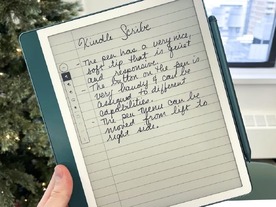 Kindle Scribe
- The pen has a very nice,
soft tip that is quiet
and responsive.
- The button on the pen is
very handy & can be
assigned to different
capabilities.
- The pen menu can be
moved from left to
right side.